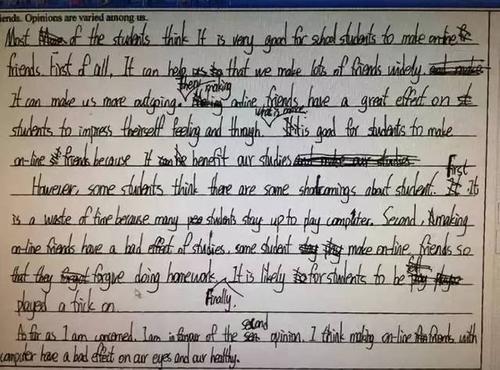 iends. Opinions are varied among us.
Most of the students think It is very good for school students to make on-line
friends. First of all, It can help that we make lots of friends widely.
It can make us more outgoing. Then, making on-line friends have a great effect on
students to impress theirself feeling and though. what is more, It is good for students to make
on-line friends because It can benefit our studies
However, some students think there are some shotcomings about student. First It
is a waste of time because many students stay up to play computer. Second, making
on-line friends have a bad effect of studies, some student make on-line friends so
that they forgive doing homework. Finally, It is likely for students to be
played a trick on.
As far as I am concerned, I am in favour of the second opinion. I think making on-line friends with
computer have a bad effect on our eyes and our healthy.